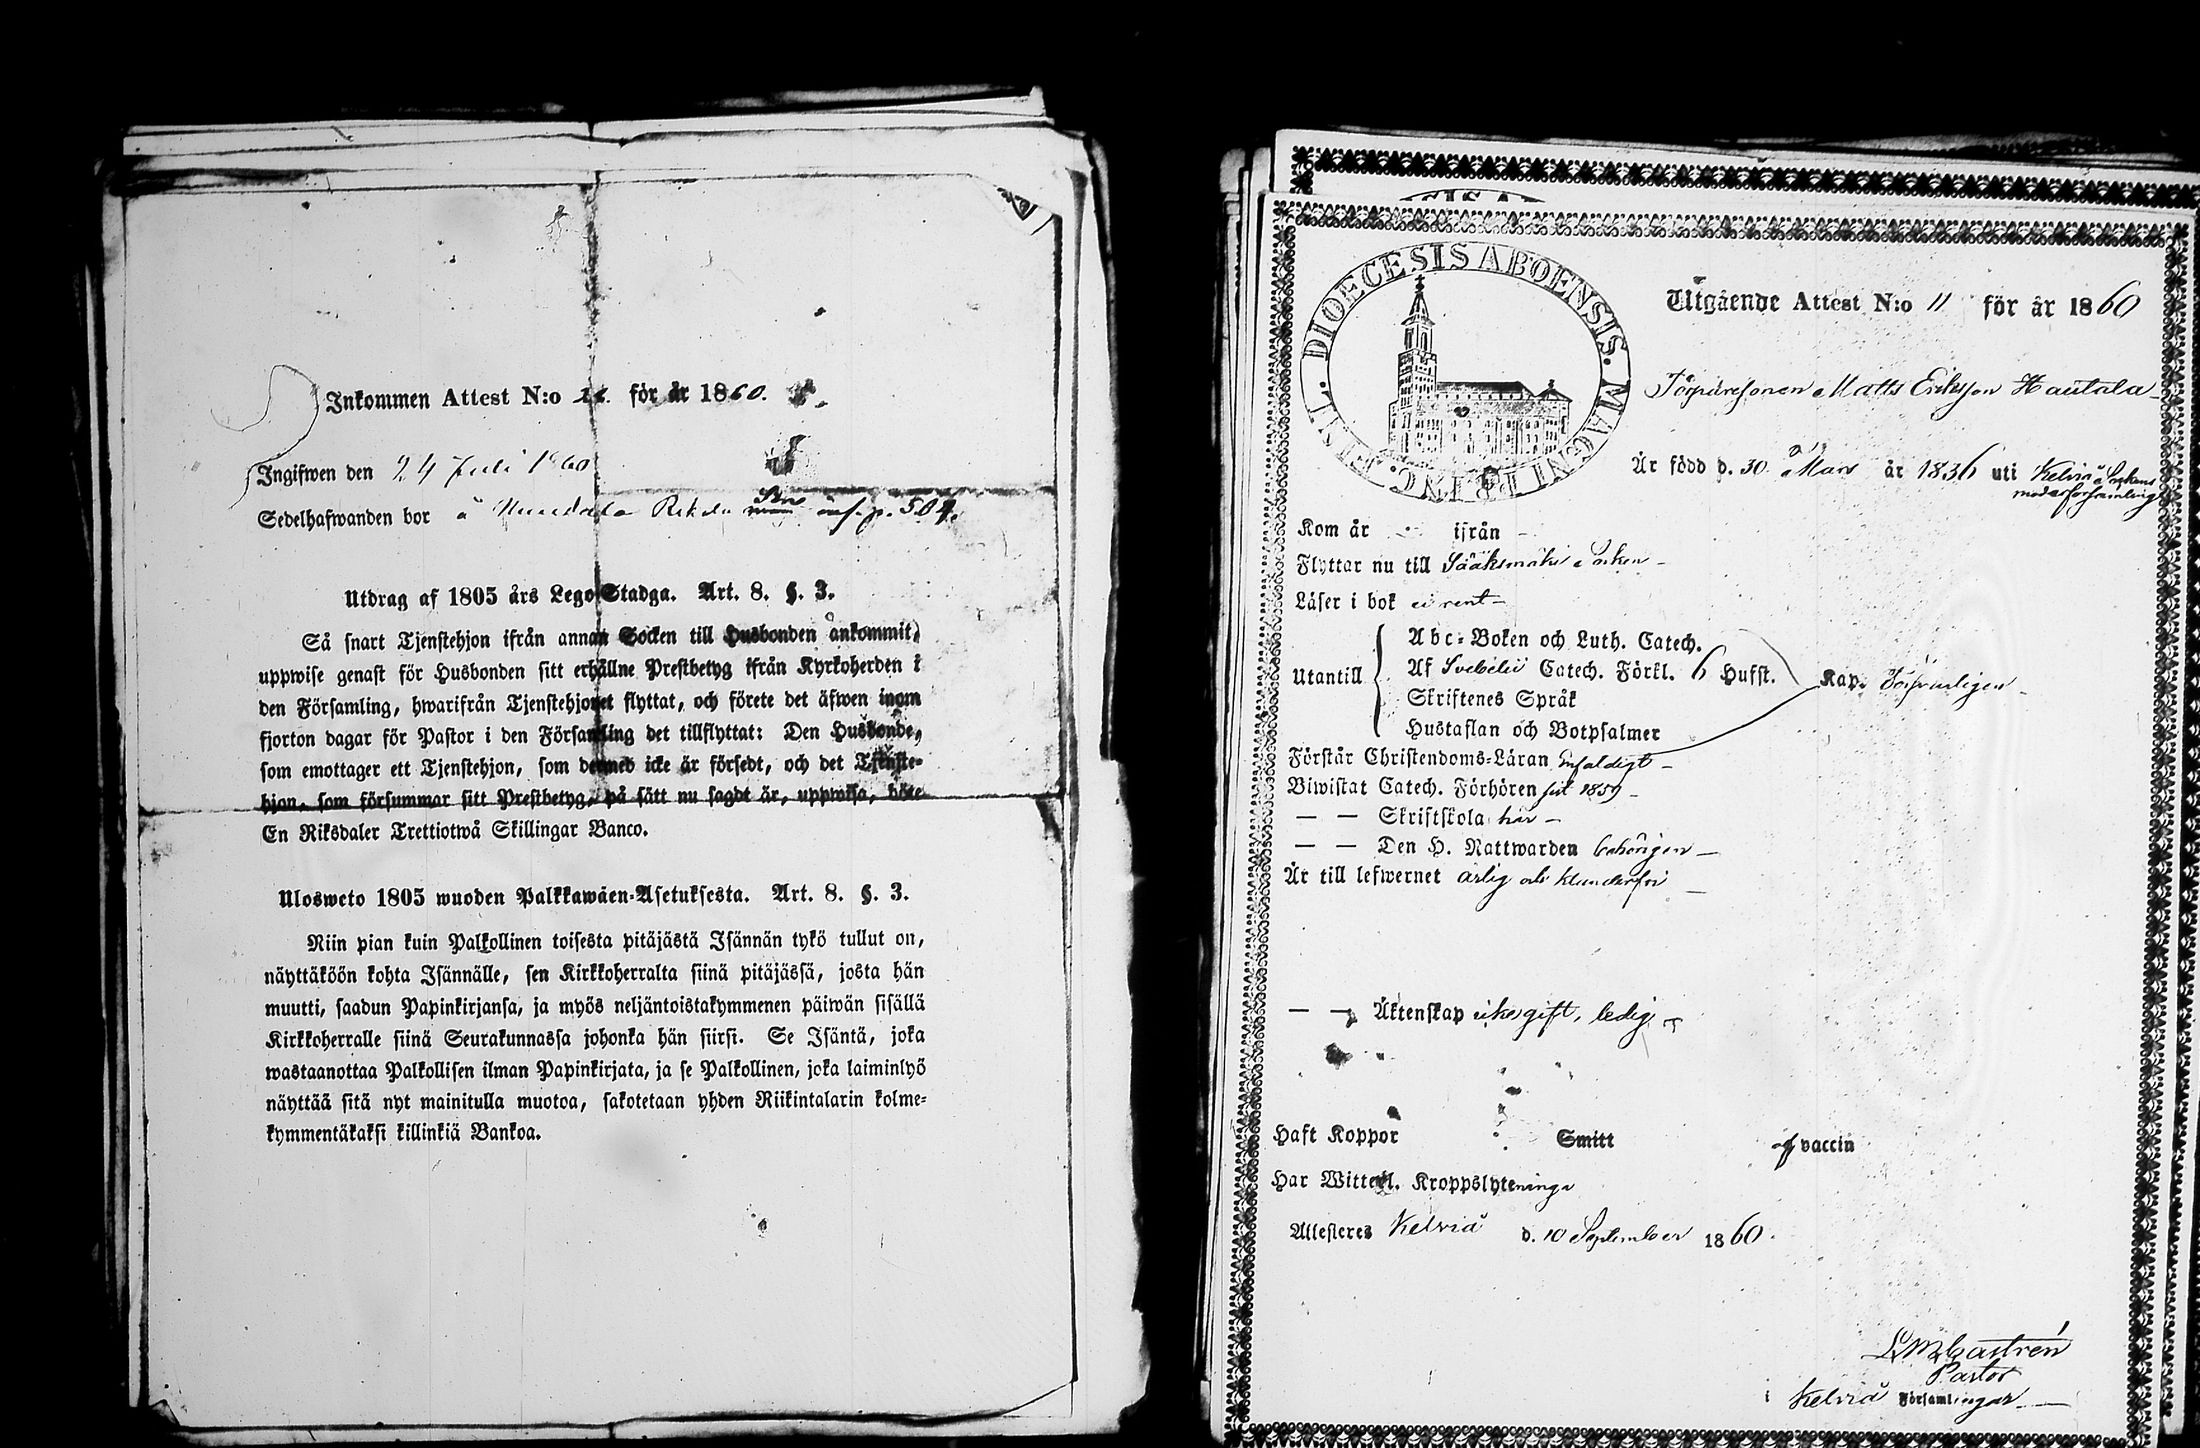 Inkommen Attest N:o för år 1860.
Ingifwen den 24 Juli 1860
Sedelhafwanden bor å p. 504.
Utdrag af 1805 års Lego-Stadga. Art. 8. §. 3.
Så snart Tjenstehjon ifrån annan Socken till Husbonden ankommit,
uppwise genast för Husbonden sitt erhållne Prestbetyg ifrån Kyrkoherden i
den Församling, hwarifrån Tjenstehjonet flyttat, och förete det äfwen inom
fjorton dagar för Pastor i den Församling det tillflyttat: Den Husbonde,
som emottager ett Tjenstehjon, som dermed icke är försedt, och det Tjenste-
hjon, som försummar sitt Prestbetyg, på sätt nu sagdt är, uppwisa, böte
En Riksdaler Trettiotwå Skillingar Banco.
Ulosweto 1805 wuoden Palkkawäen-Asetuksesta. Art. 8. §. 3.
Niin pian kuin Palkollinen toisesta pitäjästä Isännän tykö tullut on,
näyttäköön kohta Isännälle, sen Kirkkoherralta siinä pitäjässä, josta hän
muutti, saadun Papinkirjansa, ja myös neljäntoistakymmenen päiwän sisällä
Kirkkoherralle siinä Seurakunnassa johonka hän siirsi. Se Isäntä, joka
wastaanottaa Palkollisen ilman Papinkirjata, ja se Palkollinen, joka laiminlyö
näyttää sitä nyt mainitulla muotoa, sakotetaan yhden Riikintalarin kolme-
kymmentäkaksi killinkiä Bankoa.
DIOECESIS ABOENSIS. MAGNI PRINC. FINL.
Utgående Attest N:o 11 för år 1860
Torparesonen Matts Eriksson Hautala
Är född d. 30 Mars år 1836 uti Kelviå Sockens
moderförsamling
Kom år - ifrån -
Flyttar nu till Sääksmäki Socken -
Läser i bok ei rent -
Abc-Boken och Luth. Catech.
Utantill Af Svebelii Catech. Förkl. 6 Hufst. Kap. försvarligen -
Skriftenes Språk
Hustaflan och Botpsalmer
Förstår Christendoms-Läran enfaldigt -
Biwistat Catech. Förhören sist 1859 -
— — Skriftskola här -
— — Den H. Nattwarden behörigen -
Är till lefwernet ärlig och klanderfri -
— — Äktenskap icke gift, ledig -
Haft Koppor Smitt af vaccin
Har Witterl. Kroppslyte inga
Attesteres Kelviå d. 10 September 1860.
Castrén
Pastor
i Kelviå Församlingar -